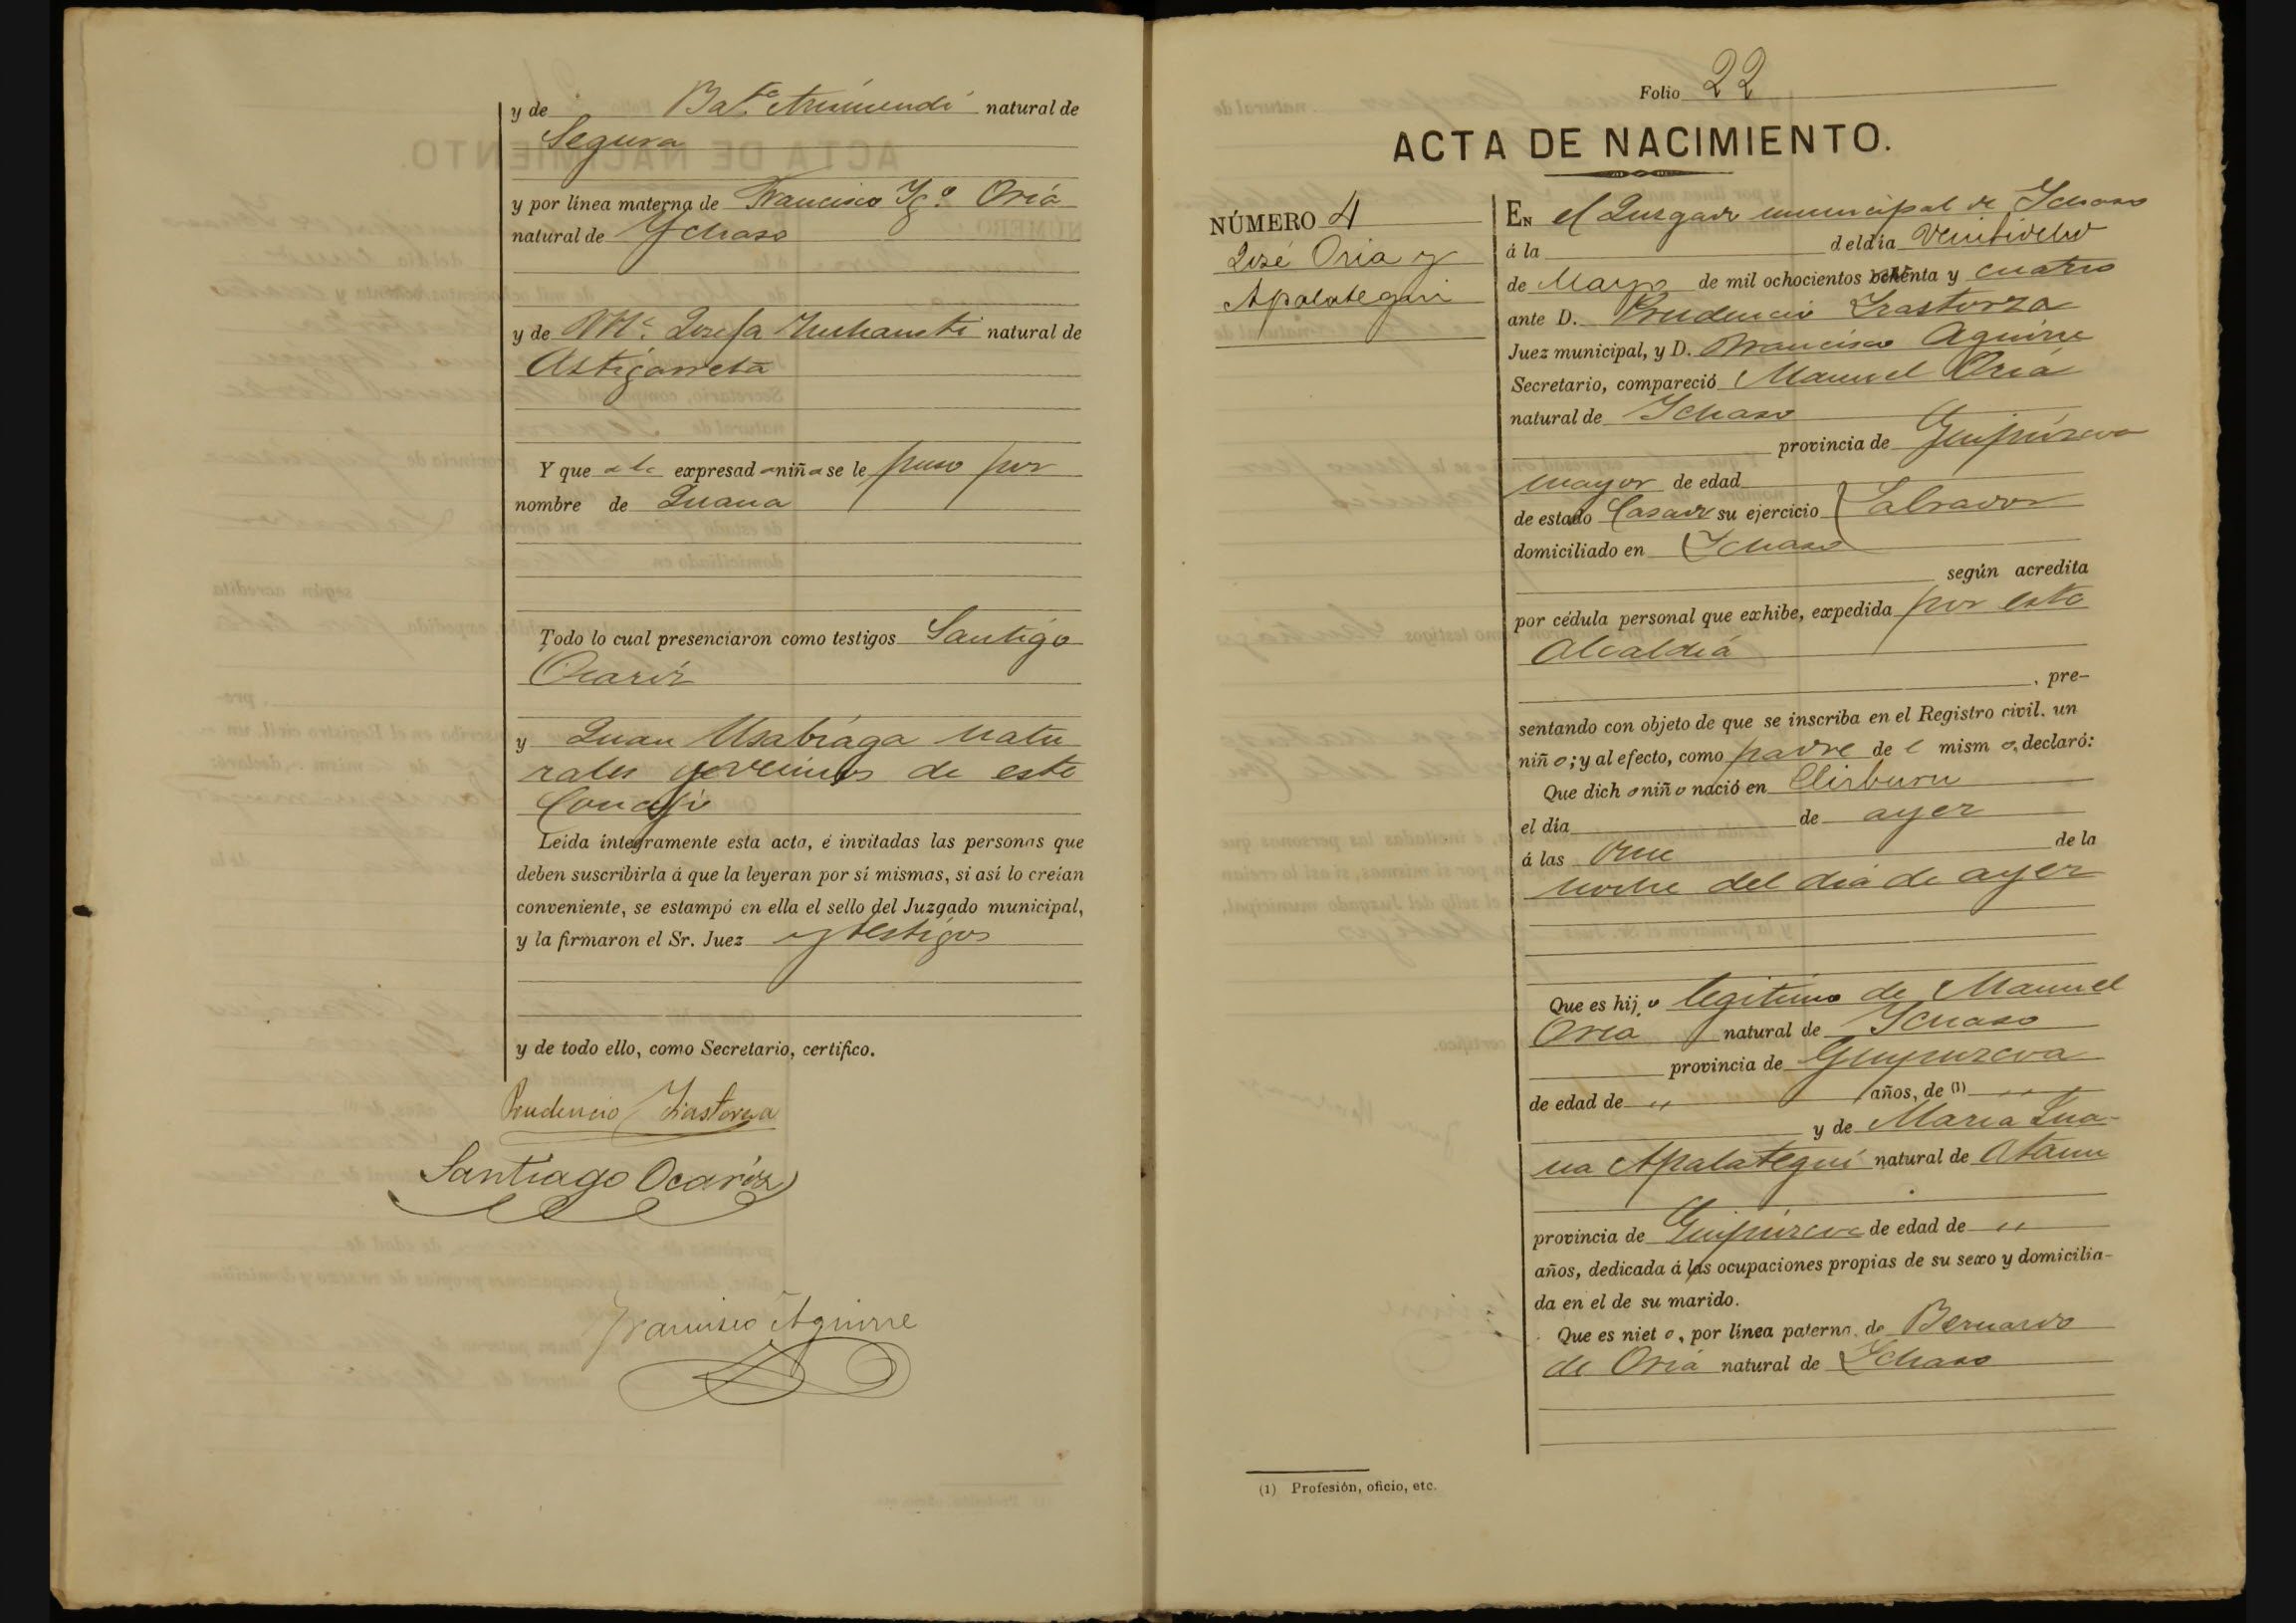 y de Bat.ª Arimendi natural de
Segura
y por línea materna de Francisco Yg.º Oria
natural de Ychaso
y de M.ª Josefa natural de
Astigarreta
Y que a la expresada niña se le puso por
nombre de Juana
Todo lo cual presenciaron como testigos Santigo
Ocariz
y Juan Usabiaga natu
rales y vecinos de este
Concejo
Leida íntegramente esta acta, é invitadas las personas que
deben suscribirla á que la leyeran por sí mismas, si así lo creían
conveniente, se estampó en ella el sello del Juzgado municipal,
y la firmaron el Sr. Juez y testigos
y de todo ello, como Secretario, certifico.
Prudencio Irastorza
Santiago Ocariz
Francisco Aguirre
Folio 22
ACTA DE NACIMIENTO.
NÚMERO 4
José Oria y
Apalategui
EN el Juzgado municipal de Ychaso
á la del día Veintiocho
de Mayo de mil ochocientos ochenta y cuatro
ante D. Prudencio Irastorza
Juez municipal, y D. Francisco Aguirre
Secretario, compareció Manuel Oria
natural de Ychaso
provincia de Guipúzcoa
mayor de edad
de estado Casado su ejercicio Labrador
domiciliado en Ychaso
según acredita
por cédula personal que exhibe, expedida por esta
Alcaldía
, pre-
sentando con objeto de que se inscriba en el Registro civil, un
niño; y al efecto, como padre de l mismo, declaró:
Que dicho niño nació en Elisburu
el día de ayer
á las once de la
noche del día de ayer
Que es hijo legitimo de Manuel
Oria natural de Ychaso
provincia de Guipuzcoa
de edad de " años, de (1) "
y de Maria Jua-
na Apalategui natural de Ataun
provincia de Guipúzcoa de edad de "
años, dedicada á las ocupaciones propias de su sexo y domicilia-
da en el de su marido.
Que es nieto, por línea paterna, de Bernardo
de Oria natural de Ychaso
(1) Profesión, oficio, etc.